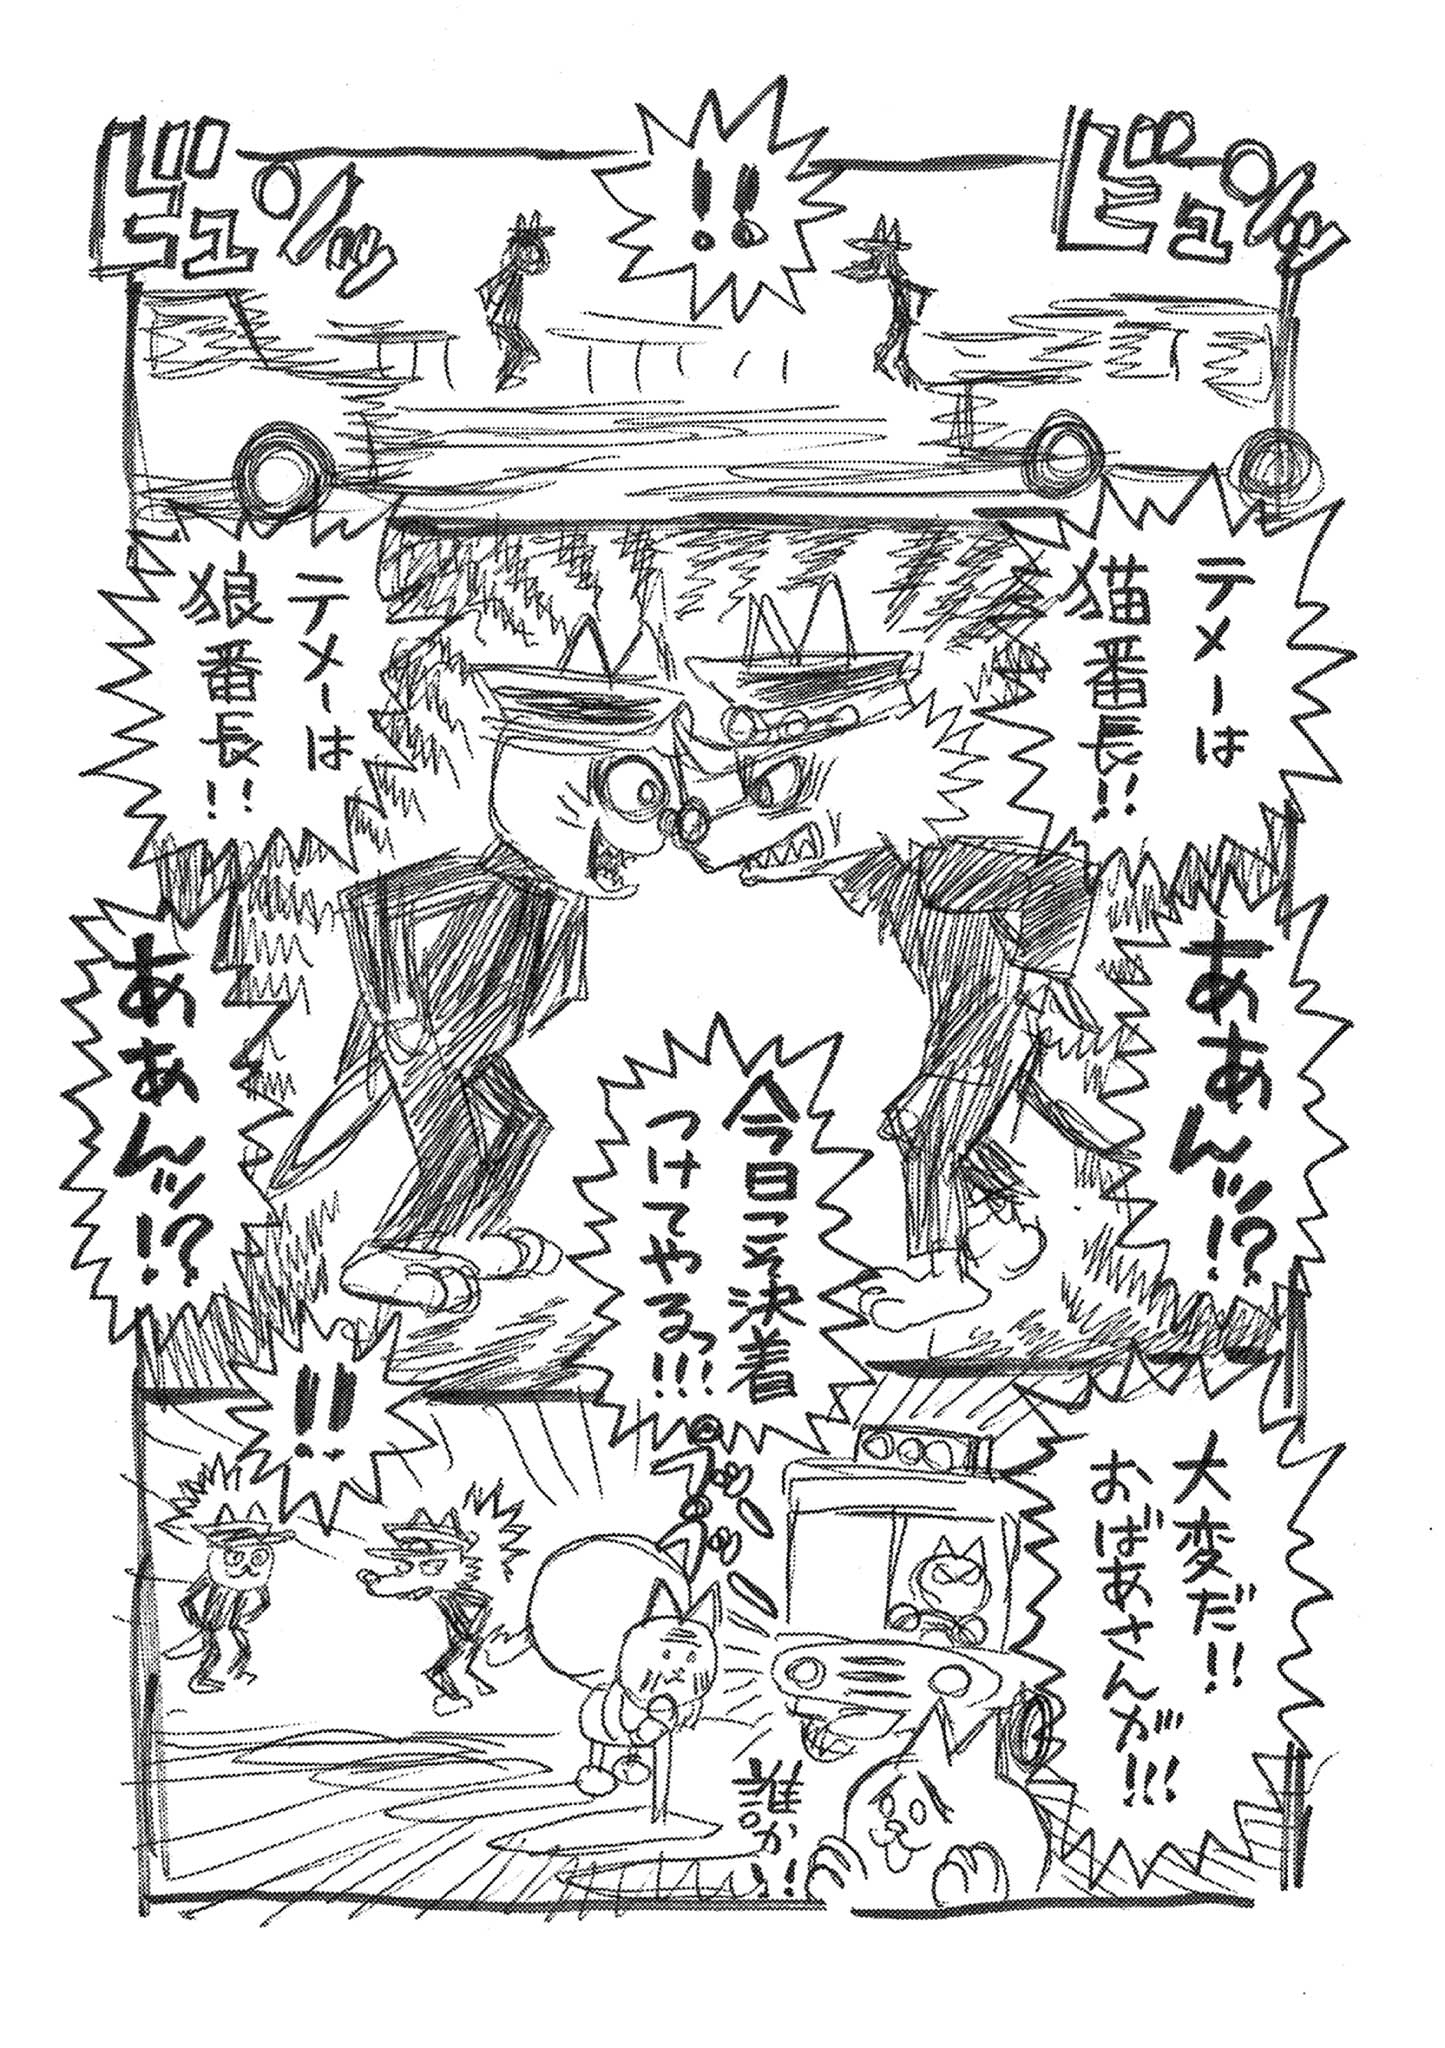 ビュ〜
!!
ビュ〜
テメーは
猫番長!!
テメーは
狼番長!!
ああんッ!?
ああんッ!?
今日こそ決着
つけてやるっ!!!
大変だ!!
おばあさんが!!!
誰か!!
!!